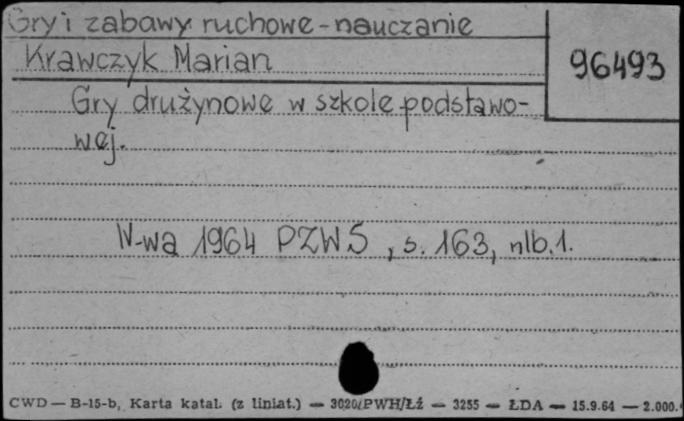 Gry i zabawy ruchowe - nauczanie
Krawczyk Marian
96493
Gry drużynowe w szkole podstawo-
wej.
W-wa 1964 PZWS, s. 163, nlb. 1.
CWD — B-15-b, Karta katal. (z liniat.) — 3020/PWH/Łź — 3255 — ŁDA — 15.9.64 — 2.000.